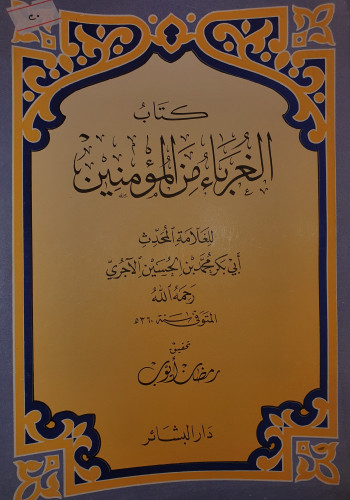 ٢٠
كتاب
الغُرَبَاءُ مِنَ المُؤْمِنِينَ
للعَلَّامَةِ المُحَدِّثِ
أَبي بَكر مُحَمَّد بْن الحُسَيْن الآجُرِّي
رَحِمَهُ اللهُ
المتَوفّى سَنة ٣٦٠ هـ
تحقيق
رمضان أيوب
دار البشائر